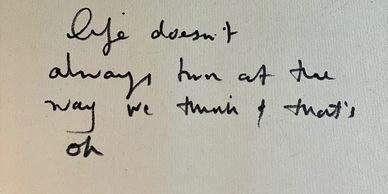 life doesn't
always turn at the
way we think & that's
ok